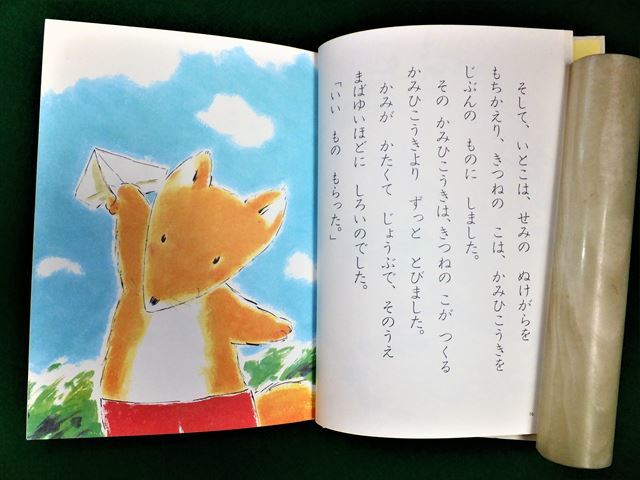 そして、いとこは、せみの　ぬけがらを
もちかえり、きつねの　こは、かみひこうきを
じぶんの　ものに　しました。
その　かみひこうきは、きつねの　こが　つくる
かみひこうきより　ずっと　とびました。
かみが　かたくて　じょうぶで、そのうえ
まばゆいほどに　しろいのでした。
「いい　もの　もらった。」